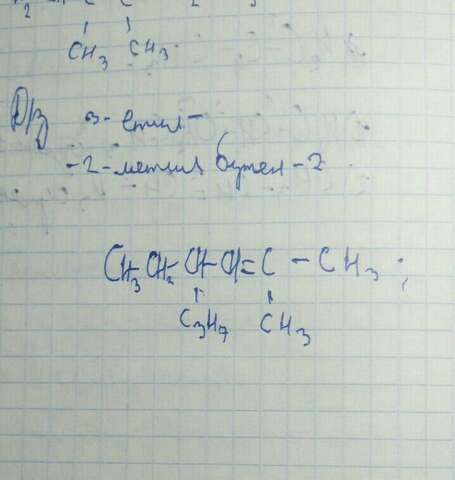 2 C C 2 3
CH3 CH3
Дз 3-етил-
-2-метил бутен-2
CH3 CH2-CH-CH=C-CH3;
C3H7 CH3